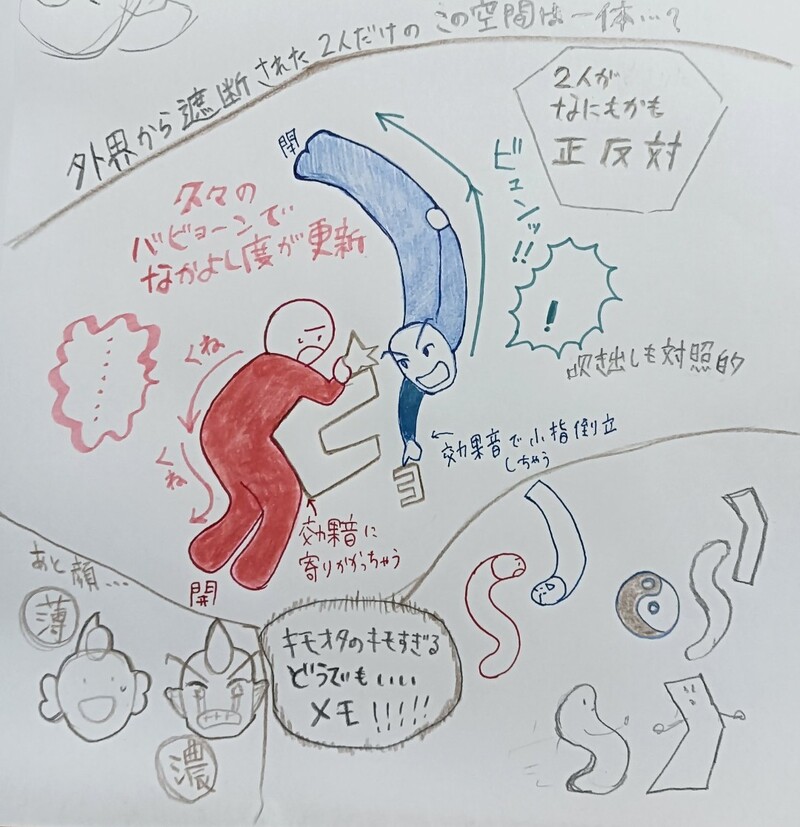 外界から遮断された2人だけのこの空間は一体…?
2人が
なにもかも
正反対
閉
ビュンッ!!
久々の
バビョーンで
なかよし度が更新
!
吹き出しも対照的
…………
くね
くね
ビョ
効果音で小指倒立
しちゃう
効果音に
寄りかかっちゃう
開
あと顔…
薄
濃
キモオタのキモすぎる
どうでもいい
メモ!!!!!